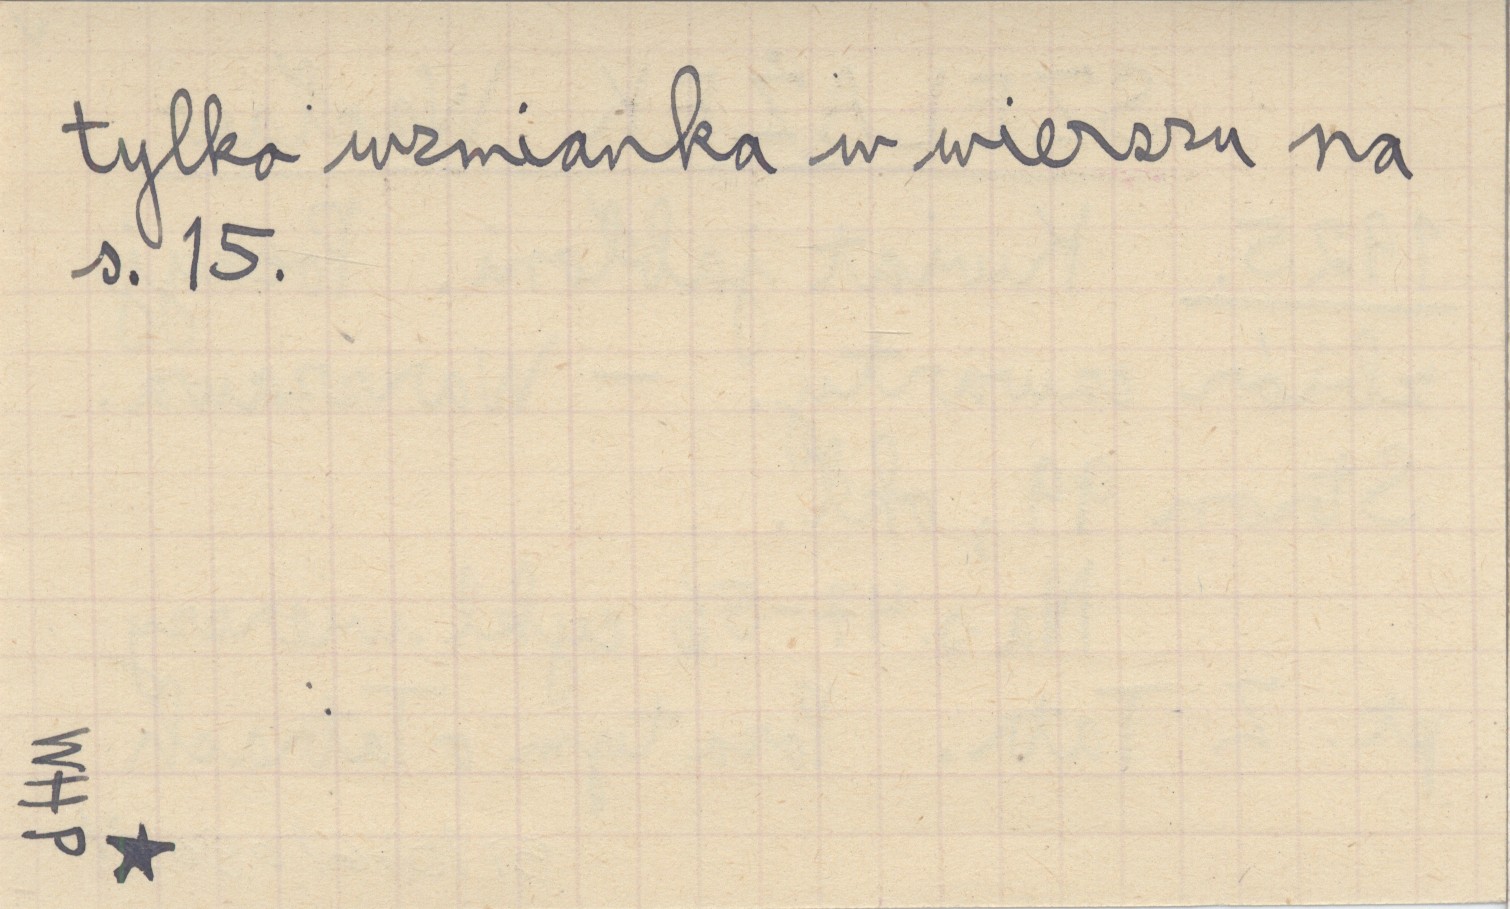 tylko wzmianka w wierszu na
s. 15.
WHP